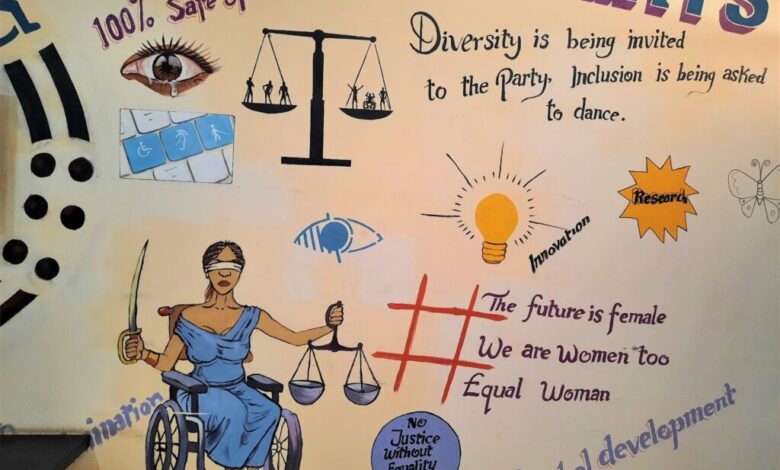 100% Safe
Diversity is being invited
to the Party, Inclusion is being asked
to dance.
Research
Innovation
The future is female
We are Women too
Equal Woman
No
Justice
Without
Equality
development